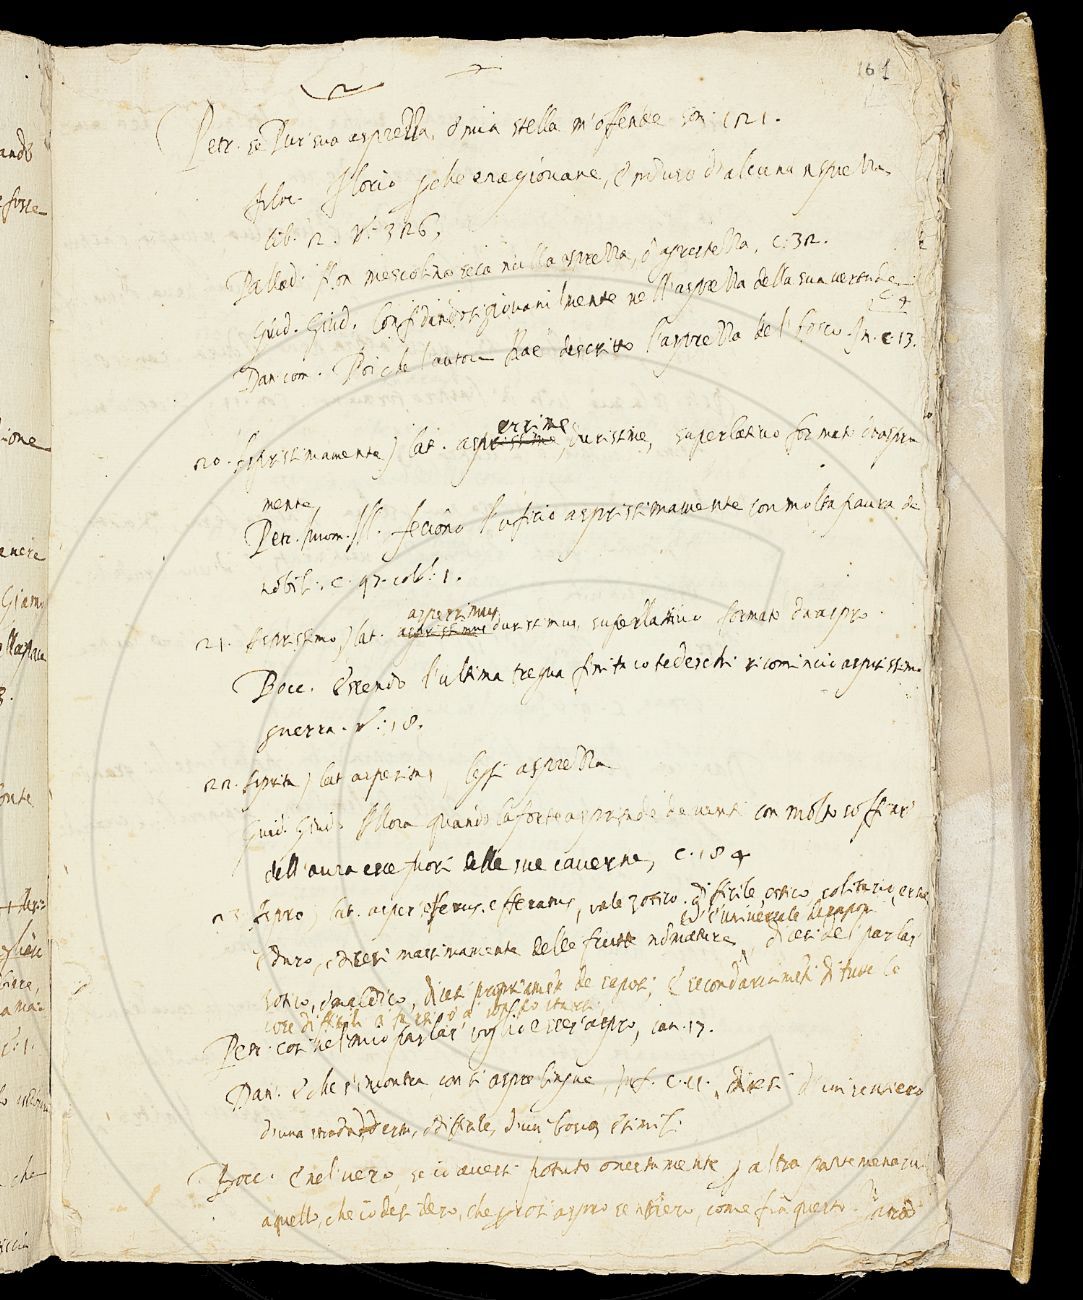 161
Petr. se Pur sua asprezza, o mia stella m'offende son: 121.
Filoc. Florio che era giovane, e induro d'alcuna asprezza
lib. 2. N: 326.
Pallad. Non mescolino seco nulla asprezza, o agrestezza, c. 32.
Guid. Giud. Confidandosi giovanilmente nell'asprezza della sua vertude c. 4
Dan. com. Poi che l'autore hae descritto l'asprezza del fosco In. c. 13.
20. Asprissimamente) lat. asprissime errime, durissime, superlativo formato d'aspra
mente
Petr. huom. Ill. feciono l'uficio asprissimamente con molta paura de
nobili. c. 97. col. 1.
21. Asprissimo) lat. asprissimus asperrimus durissimus, superlativo formato da aspro.
Bocc. Essendo l'ultima tregua finita co tedeschi ricominciò asprissima
guerra. N: 18.
22. Asprità) lat asperitas, leggi asprezza
Guid. Giud. Allora quando la forte asprità de venti con molto soffiar
dell'aura esce fuori delle sue caverne, c. 184
23 Aspro) lat. asper, efferus, efferatus, vale zotico. difficile, ostico, solitario, erme
ed è universale de sapori
e duro, e dicesi massimamente delle frutte non mature, dicesi del parlar
zotico, e maledico, dicesi propriamente de sapori, e secondariamente di tutte le
cose difficili
Petr. così nel mio parlar voglio esser aspro, can. 17.
Dan. e che s'incontra con sì aspre lingue, Inf. c. 11. dicesi d'un sentiero
d'una strada d'erta, e difficile, d'un bosco e simili
Bocc. e nel vero, se io avessi potuto onestamente per altra parte menarvi
a quello, che io desidero, che per così aspro sentiero, come fia questo